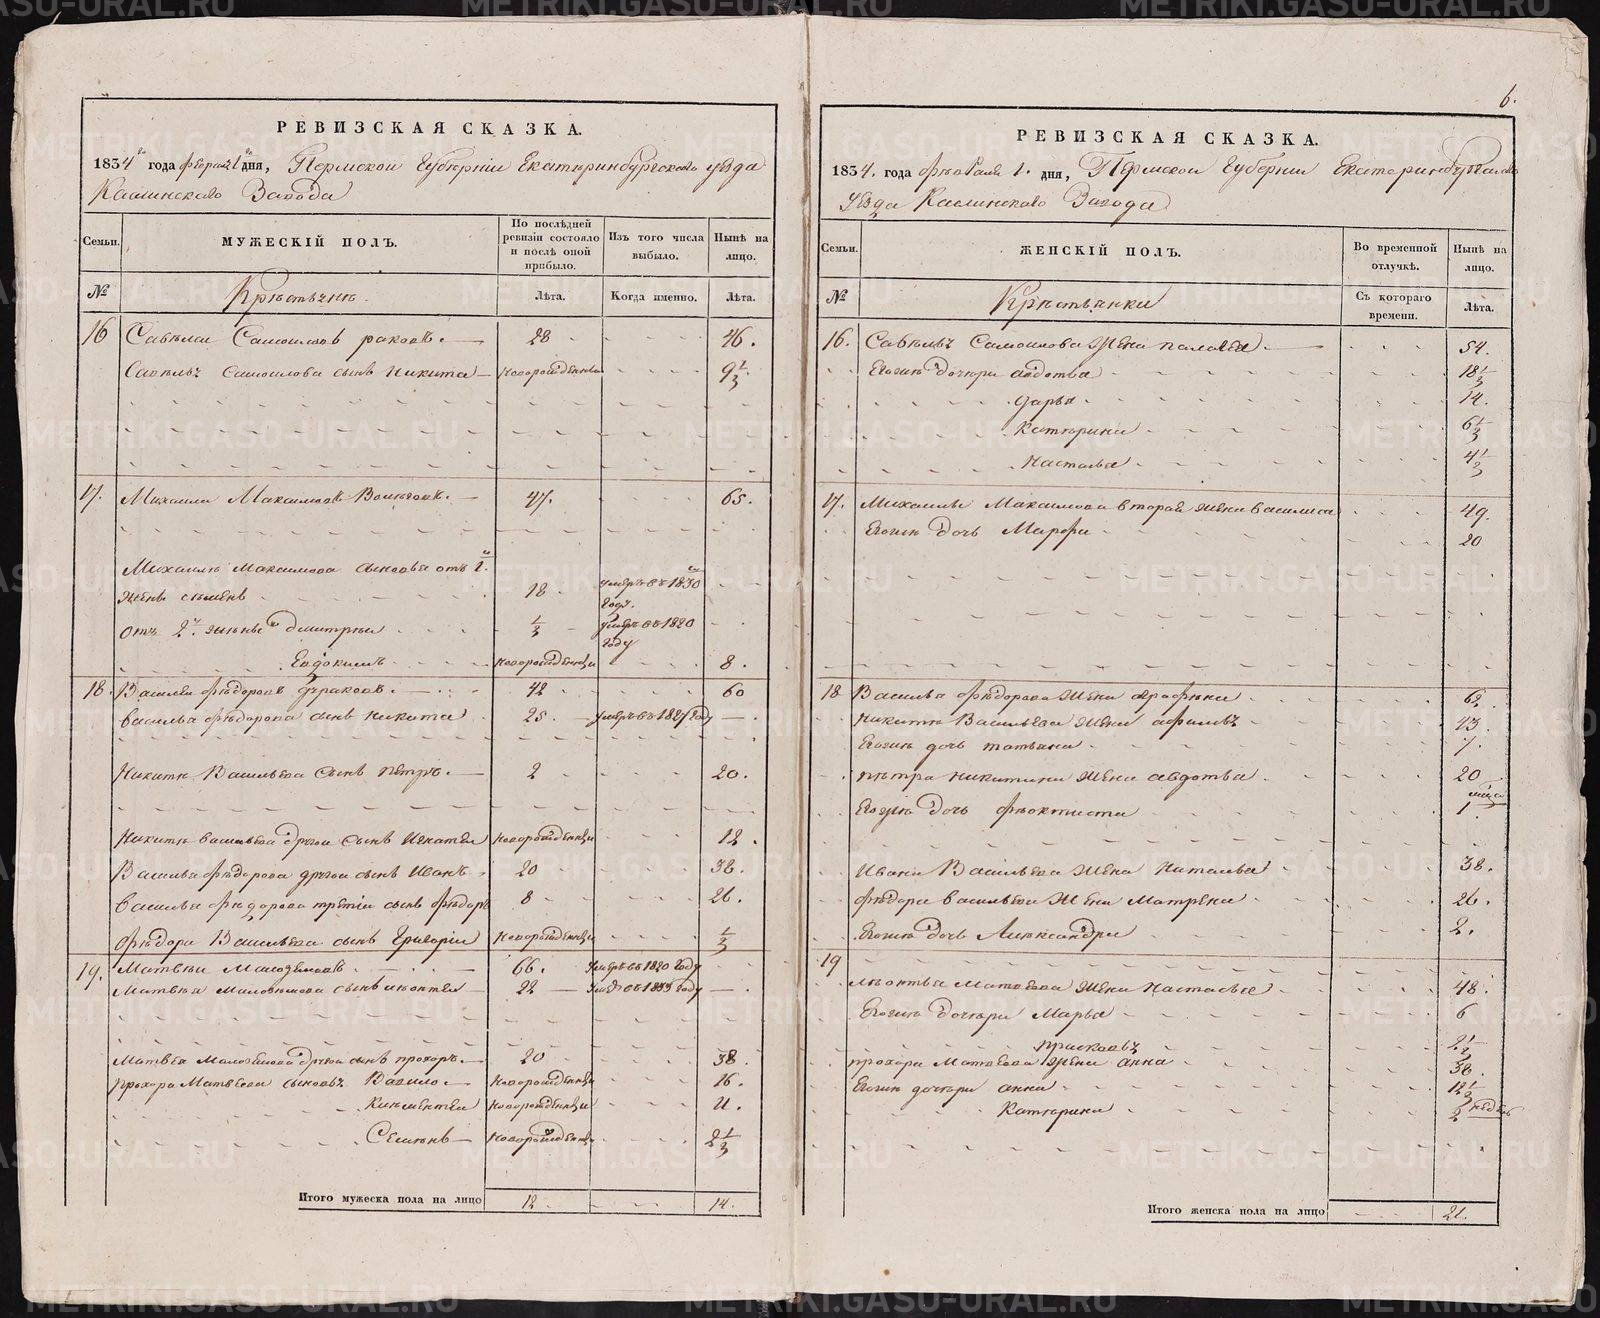 РЕВИЗСКАЯ СКАЗКА.
1834 года февраля 1 дня, Пермской Губернии Екатеринбургского уезда
Каслинского Завода
Семьи.
МУЖЕСКІЙ ПОЛЪ.
По послѣдней ревизіи состояло и послѣ оной прибыло.
Изъ того числа выбыло.
Нынѣ на лицо.
№
Крестьяне.
Лѣта.
Когда именно.
Лѣта.
16 Савелей Самоилов 28 46.
Савельа Самоилова сынъ Никита новорожденный 9 1/2
17. Михаила Максимовъ 47. 65.
Михаила Максимова сыновья отъ 1.
жены Семенъ 18 умеръ въ 1830 году.
отъ 2. жены Дмитрей 1/2 умеръ въ 1820 году
Евдокимъ новорожденный 8.
18. Василей Федоровъ 42 60
Василья Федорова сынъ Никита 25. умеръ въ 1827 году
Никиты Васильева сынъ Петръ. 2 20.
Никиты Васильева другой сынъ Игнатей новорожденный 12.
Василья Федорова другой сынъ Иванъ 20 38.
Василья Федорова третій сынъ Федоръ 8 26.
Федора Васильева сынъ Григорій новорожденный 1/2
19. Матвей 66. умеръ въ 1820 году
Матвея сынъ Леонтей 22 умеръ въ 1833 году
Матвея другой сынъ Прохоръ. 20 38.
Прохора Матвеева сыновья Вавило. новорожденный 16.
Климентей новорожденный 11.
Семенъ новорожденный 2 1/2
Итого мужеска пола на лицо 12 14.
6.
РЕВИЗСКАЯ СКАЗКА.
1834. года февраля 1. дня, Пермской Губернии Екатеринбургскаго
уезда Каслинского Завода
Семьи.
ЖЕНСКІЙ ПОЛЪ.
Во временной отлучкѣ.
Нынѣ на лицо.
№
Крестьянки
Съ котораго времени.
Лѣта.
16. Савелья Самоилова жена Палагея 54.
Его дочери Авдотья 18 1/2
Дарья 14.
Катерина 6 1/2
Настасья 4 1/2
17. Михаила Максимова вторая жена Василиса 49.
Его дочь Марфа 20
18 Василья Федорова жена Аграфена 62.
Никиты Васильева жена 43.
Его дочь Татьяна 7.
Петра Никитина жена Авдотья 20
Его дочь Феоктиста 1
Ивана Васильева жена Наталья 38.
Федора Васильева жена Матрена 26.
Его дочь Александра 2.
19
Леонтья Матвеева жена Настасья 48.
Его дочери Марья 6
Прасковья 2 1/2
Прохора Матвеева жена Анна 36.
Его дочери Анна 12 1/2
Катерина 2
Итого женска пола на лицо 21.
METRIKI.GASO-URAL.RU